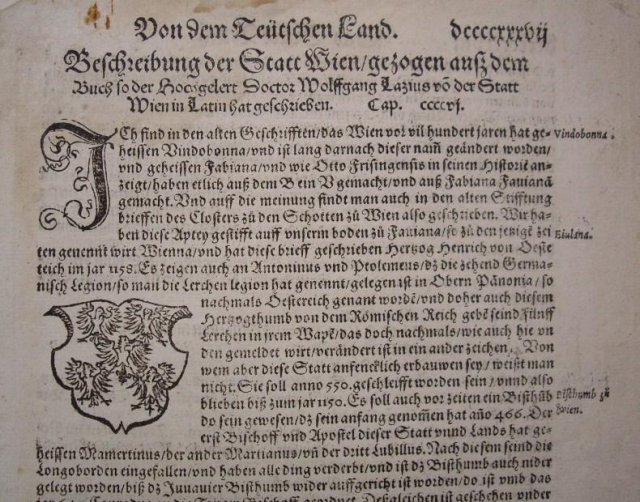 Von dem Teütschen Land. dccccxxxvij
Beschreibung der Statt Wien/gezogen ausz dem
Buch so der Hochgelert Doctor Wolffgang Lazius võ der Statt
Wien in Latin hat geschrieben. Cap. ccccvj.
ICh find in den alten Geschrifften/das Wien vor vil hundert jaren hat ge- Vindobonna.
heissen Vindobonna/vnd ist lang darnach dieser nam̃ geändert worden/
vnd geheissen Fabiana/vnd wie Otto Frisingensis in seinen Historiẽ an-
zeigt/haben etlich auß dem B ein V gemacht/vnd auß Fabiana Fauianã
gemacht. Vnd auff die meinung findt man auch in den alten Stifftung
brieffen des Closters zů den Schotten zů Wien also geschrieben. Wir ha-
ben diese Aptey gestifft auff vnserm boden zů Fauiana/so zů den jetzigẽ zei-
ten genennt wirt Wienna/vnd hat diese brieff geschrieben Hertzog Henrich von Oeste
reich im jar 1158. Es zeigen auch an Antoninus vnd Ptolemeus/dz die zehend Germa-
nisch Legion/so man die Lerchen legion hat genennt/gelegen ist in Obern Pãnonia/so
nachmals Oestereich genant wordẽ/vnd doher auch diesem
Hertzogthumb von dem Römischen Reich gebẽ seind fünff
Lerchen in jrem Wapẽ/das doch nachmals/wie auch hie vn
den gemeldet wirt/verändert ist in ein ander zeichen. Von
wem aber diese Statt anfencklich erbauwen sey/weißt man
nicht. Sie soll anno 550. geschleifft worden sein/vnnd also
blieben biß zum jar 1150. Es soll auch vor zeiten ein Bisthũb Bisthumb zů
do sein gewesen/dz sein anfang genom̃en hat año 466. Der Wien.
erst Bischoff vnd Apostel dieser Statt vnnd Lands hat ge-
heissen Mamertinus/der ander Martianus/vñ der dritt Lubillus. Nach diesem seind die
Longoborden eingefallen/vnd haben alle ding verderbt/vnd ist dz Bisthumb auch nider
gelegt worden/biß dz Juuauier Bisthumb wider auffgericht ist worden/do ist vmb das